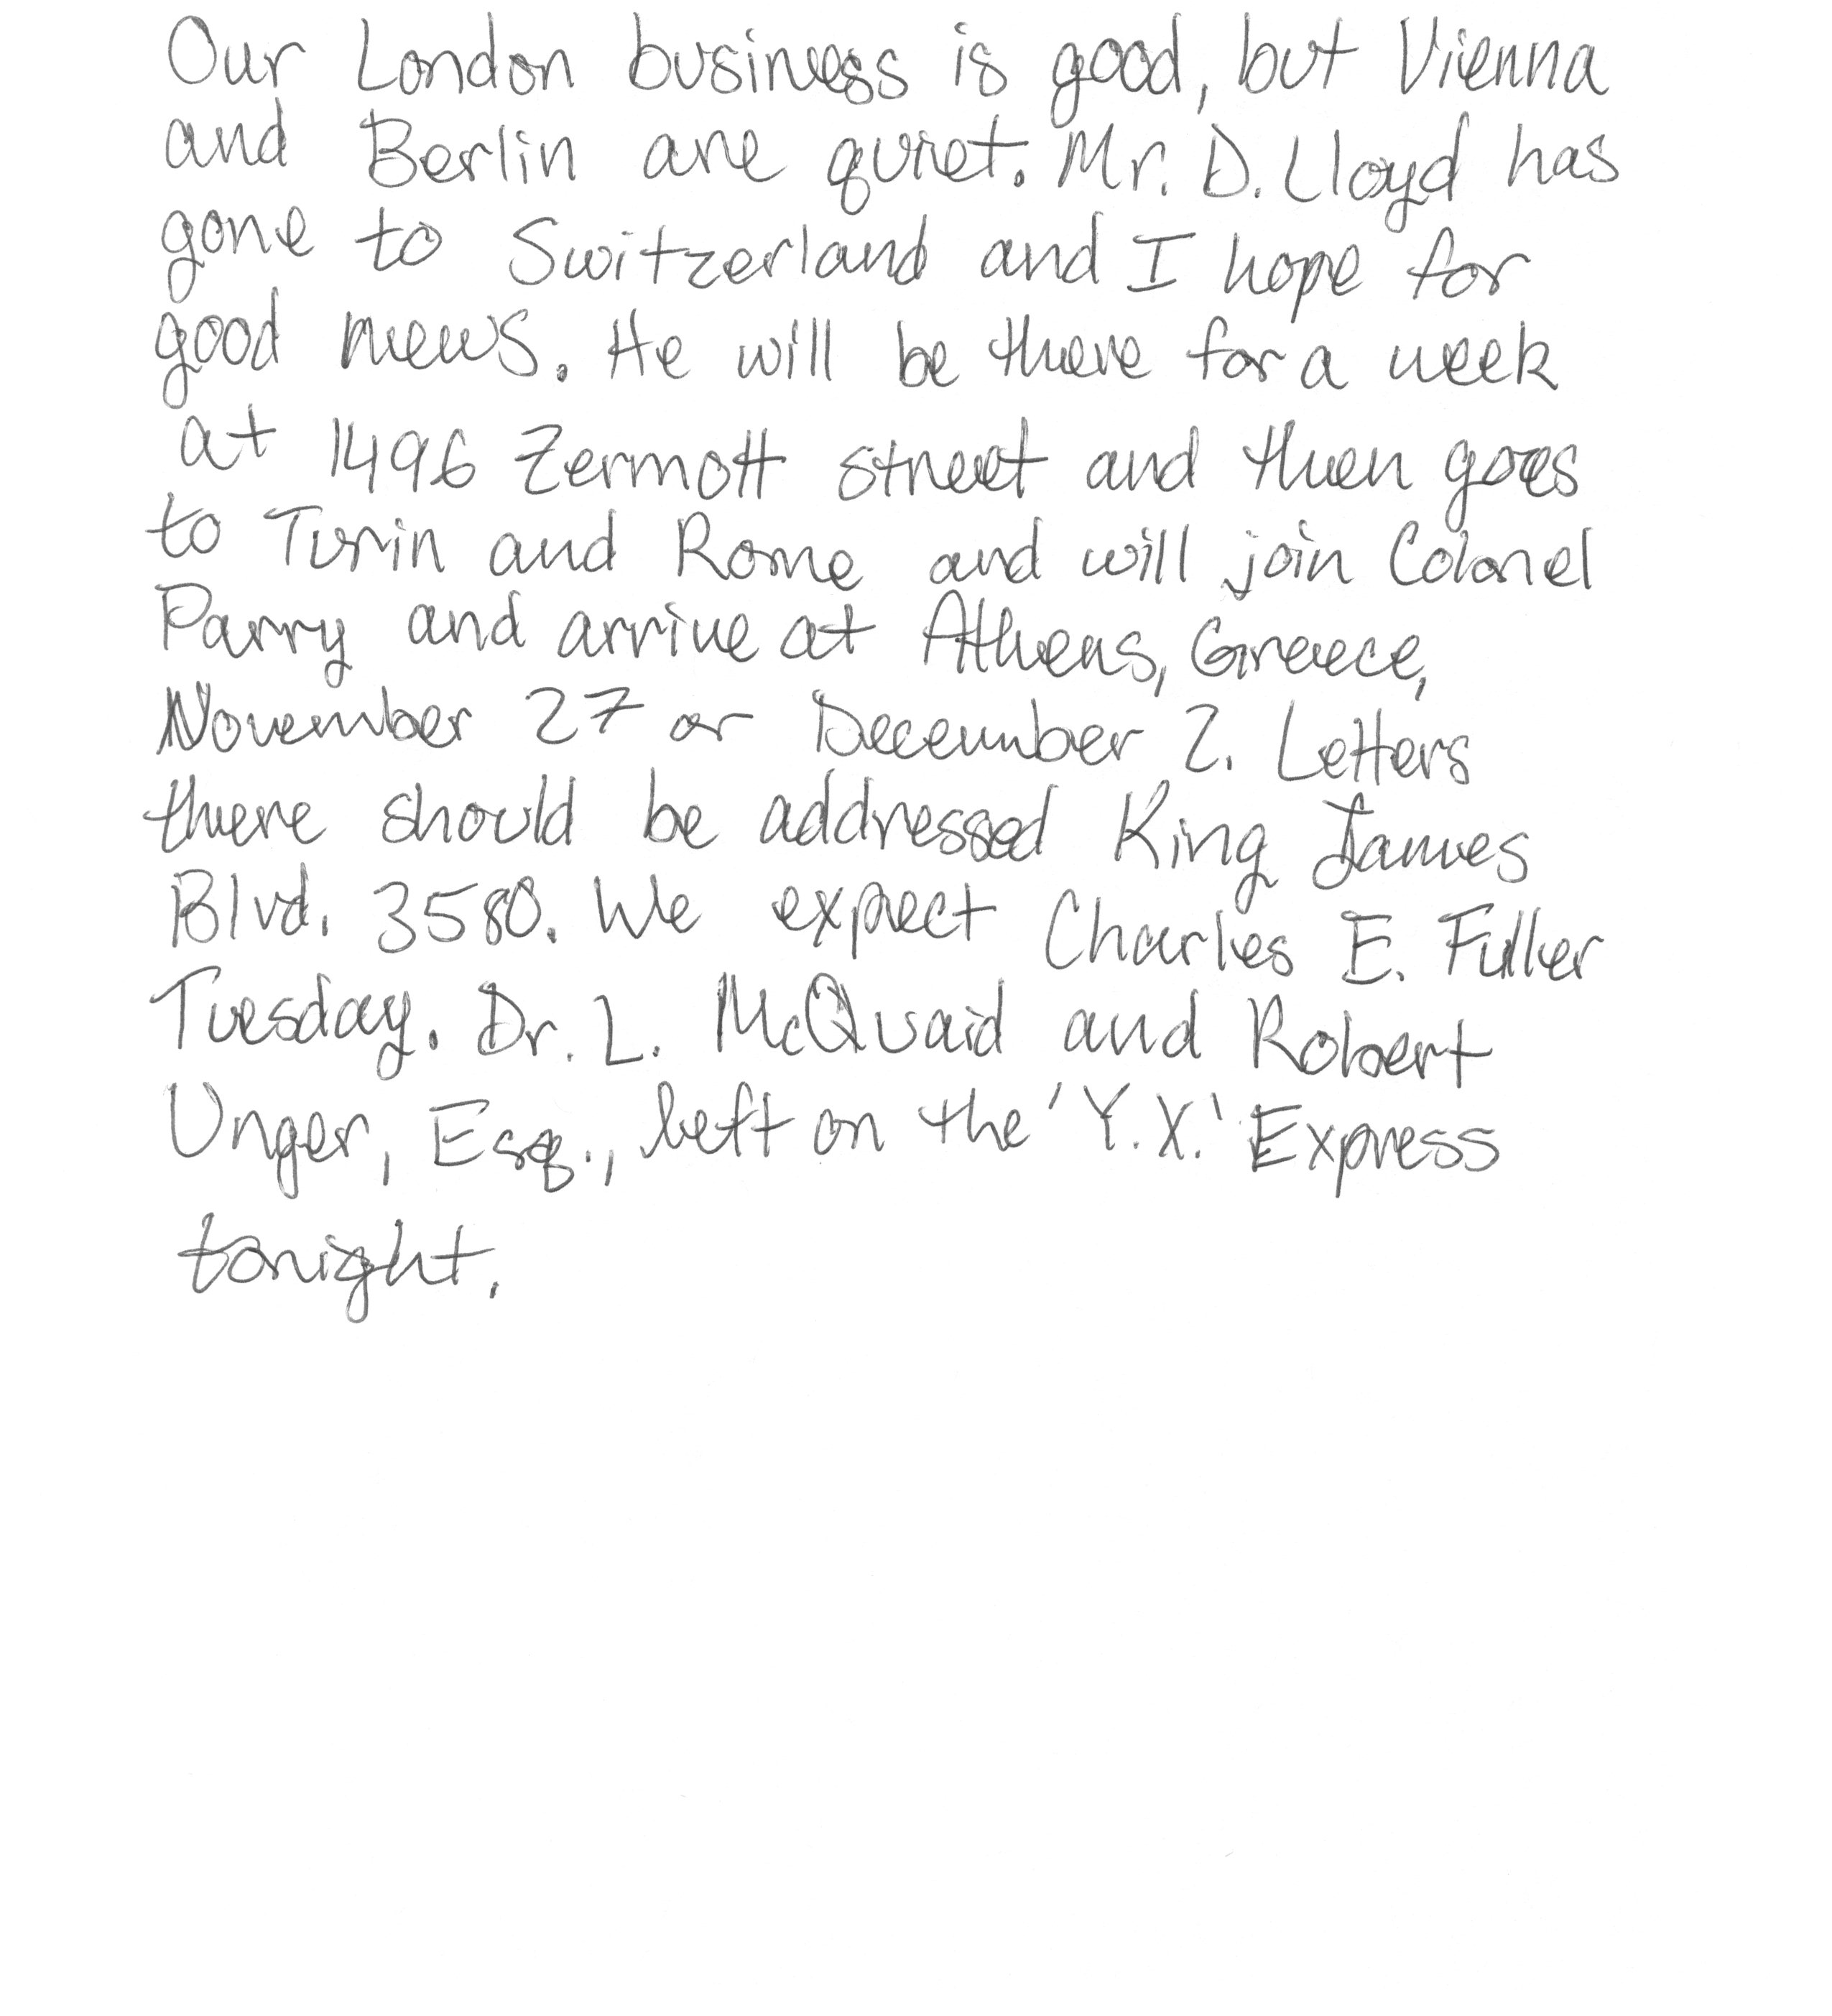 Our London business is good, but Vienna
and Berlin are quiet. Mr. D. Lloyd has
gone to Switzerland and I hope for
good news. He will be there for a week
at 1496 Zermott street and then goes
to Turin and Rome and will join Colonel
Parry and arrive at Athens, Greece,
November 27 or December 2. Letters
there should be addressed King James
Blvd. 3580. We expect Charles E. Fuller
Tuesday. Dr. L. McQuaid and Robert
Unger, Esq., left on the 'Y.X.' Express
tonight.